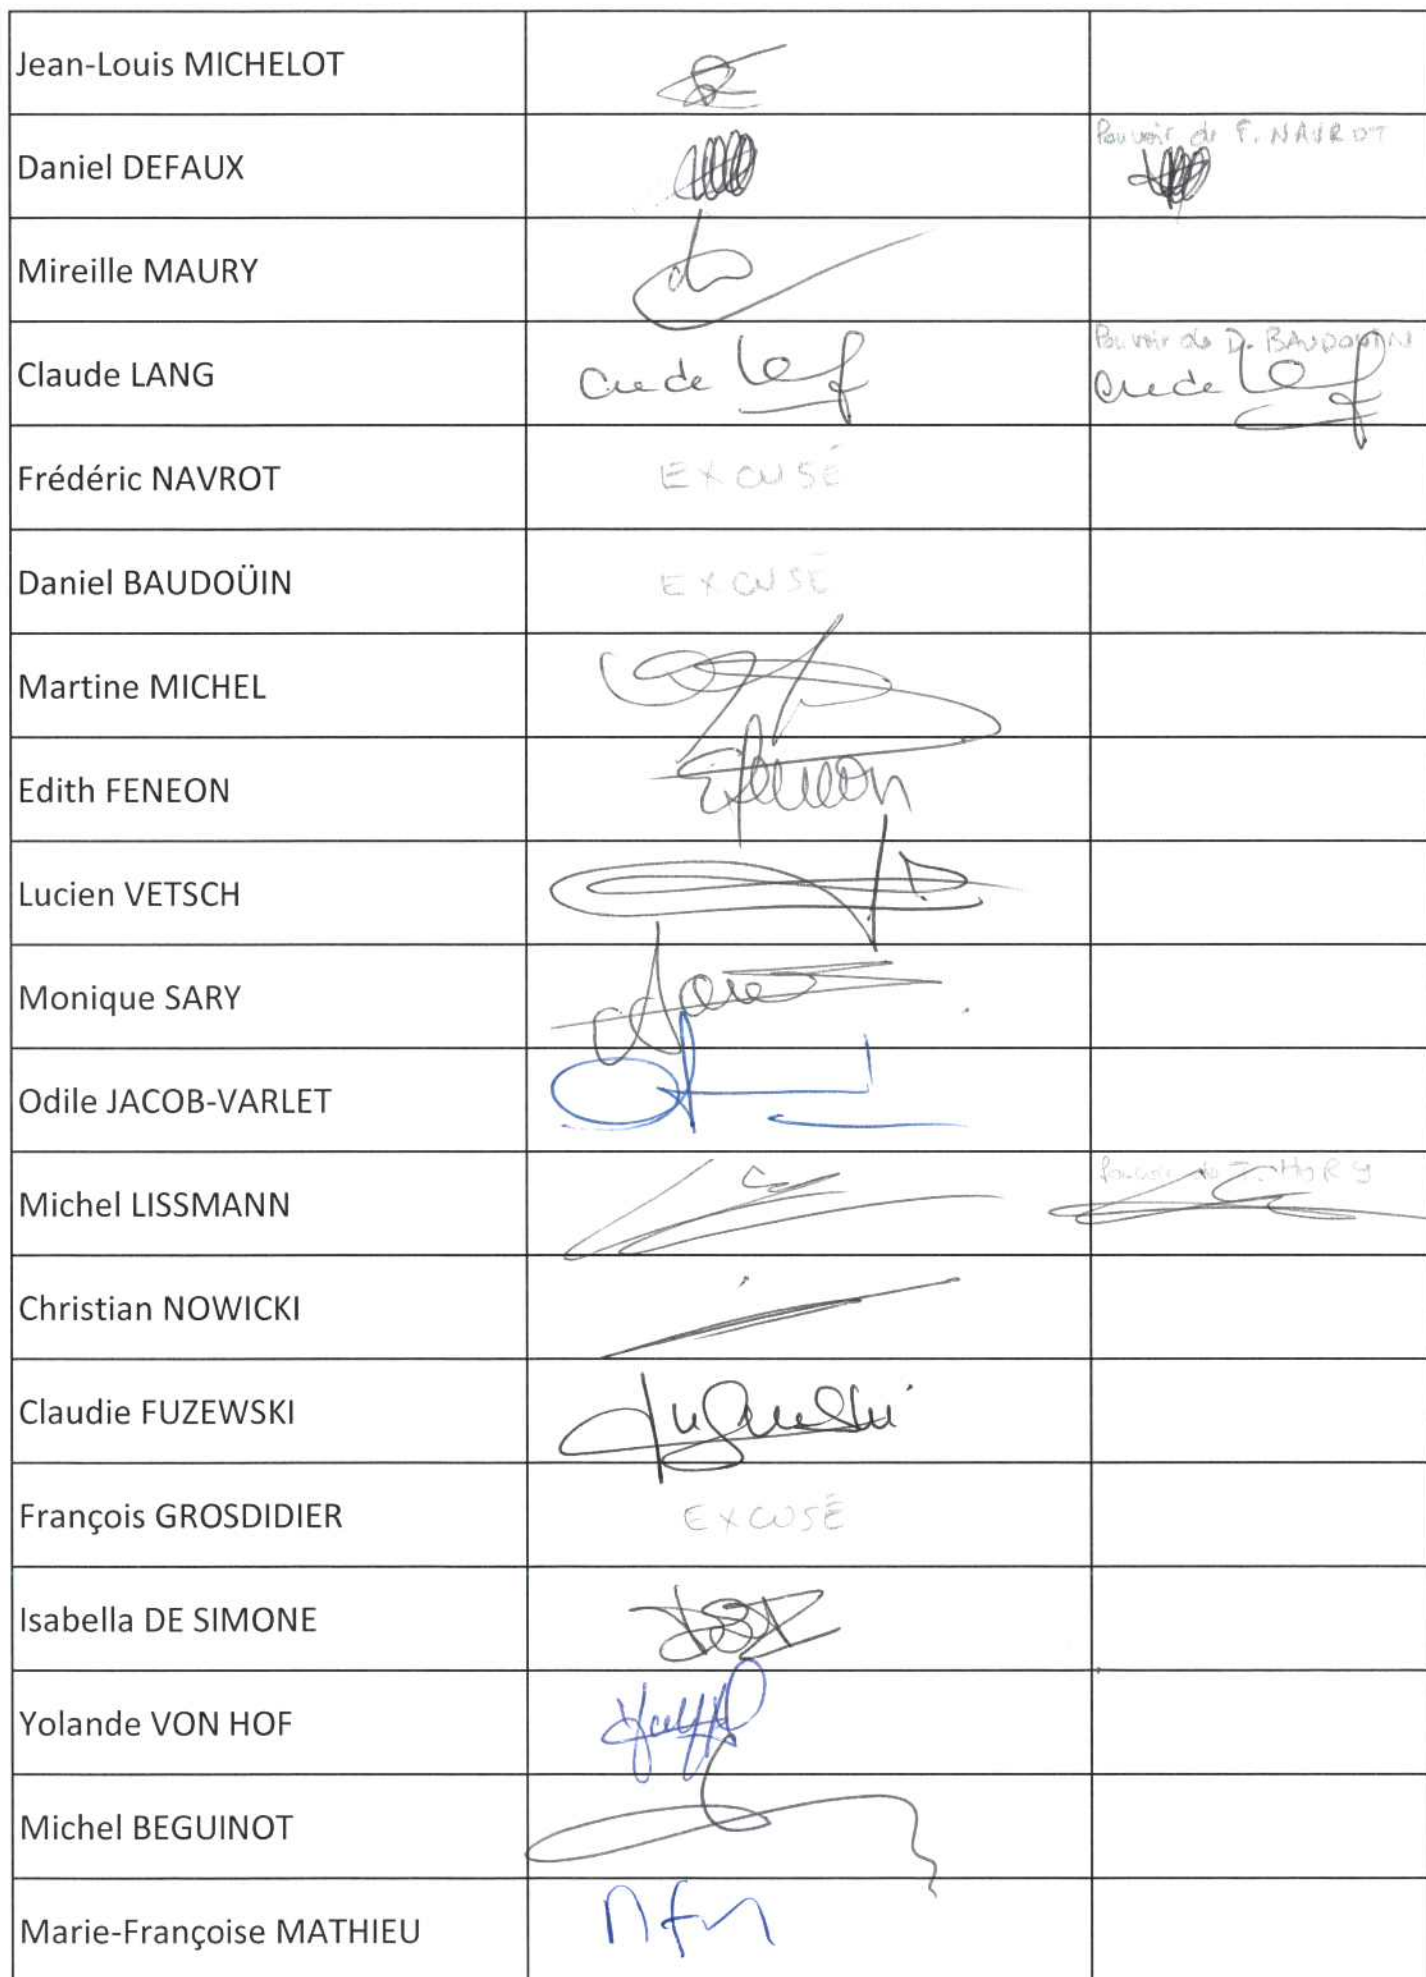 Jean-Louis MICHELOT
Daniel DEFAUX
Pouvoir de F. NAVROT
Mireille MAURY
Claude LANG
Pouvoir de D. BAUDOUIN
Frédéric NAVROT
EXCUSÉ
Daniel BAUDOÜIN
EXCUSÉ
Martine MICHEL
Edith FENEON
EFeneon
Lucien VETSCH
Monique SARY
Odile JACOB-VARLET
Michel LISSMANN
Pouvoir de
Christian NOWICKI
Claudie FUZEWSKI
François GROSDIDIER
EXCUSÉ
Isabella DE SIMONE
Yolande VON HOF
Michel BEGUINOT
Marie-Françoise MATHIEU